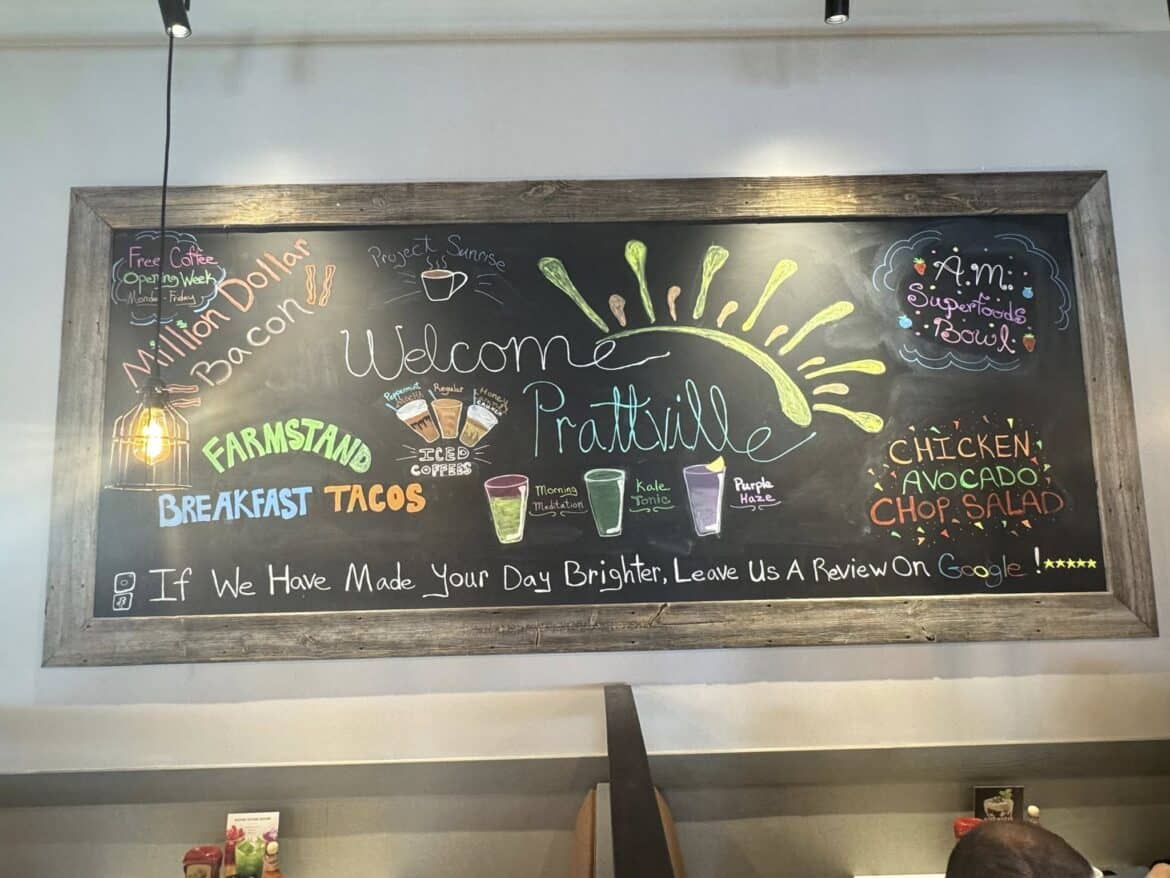 Free Coffee
Opening Week
Monday-Friday
Million Dollar
Bacon
Project Sunrise
Welcome
Prattville
A.M.
Superfoods
Bowl
Peppermint
Regular
Honey
ICED
COFFEES
FARMSTAND
BREAKFAST TACOS
Morning
Meditation
Kale
Tonic
Purple
Haze
CHICKEN
AVOCADO
CHOP SALAD
If We Have Made Your Day Brighter, Leave Us A Review On Google!